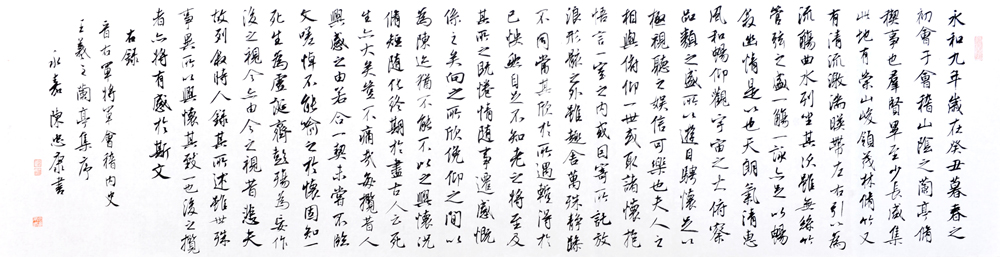 永和九年歲在癸丑暮春之
初會于會稽山陰之蘭亭脩
禊事也群賢畢至少長咸集
此地有崇山峻領茂林脩竹又
有清流激湍暎帶左右引以為
流觴曲水列坐其次雖無絲竹
管弦之盛一觴一詠亦足以暢
敘幽情是日也天朗氣清惠
風和暢仰觀宇宙之大俯察
品類之盛所以遊目騁懷足以
極視聽之娛信可樂也夫人之
相與俯仰一世或取諸懷抱
悟言一室之內或因寄所託放
浪形骸之外雖趣舍萬殊靜躁
不同當其欣於所遇暫得於
己怏然自足不知老之將至及
其所之既惓情隨事遷感慨
係之矣向之所欣俛仰之間以
為陳迹猶不能不以之興懷況
脩短隨化終期於盡古人云死
生亦大矣豈不痛哉每攬昔人
興感之由若合一契未嘗不臨
文嗟悼不能喻之於懷固知一
死生為虛誕齊彭殤為妄作
後之視今亦由今之視昔悲夫
故列敘時人錄其所述雖世殊
事異所以興懷其致一也後之攬
者亦將有感於斯文
右錄
晉右軍將軍會稽內史
王羲之蘭亭集序
永嘉陳忠康書